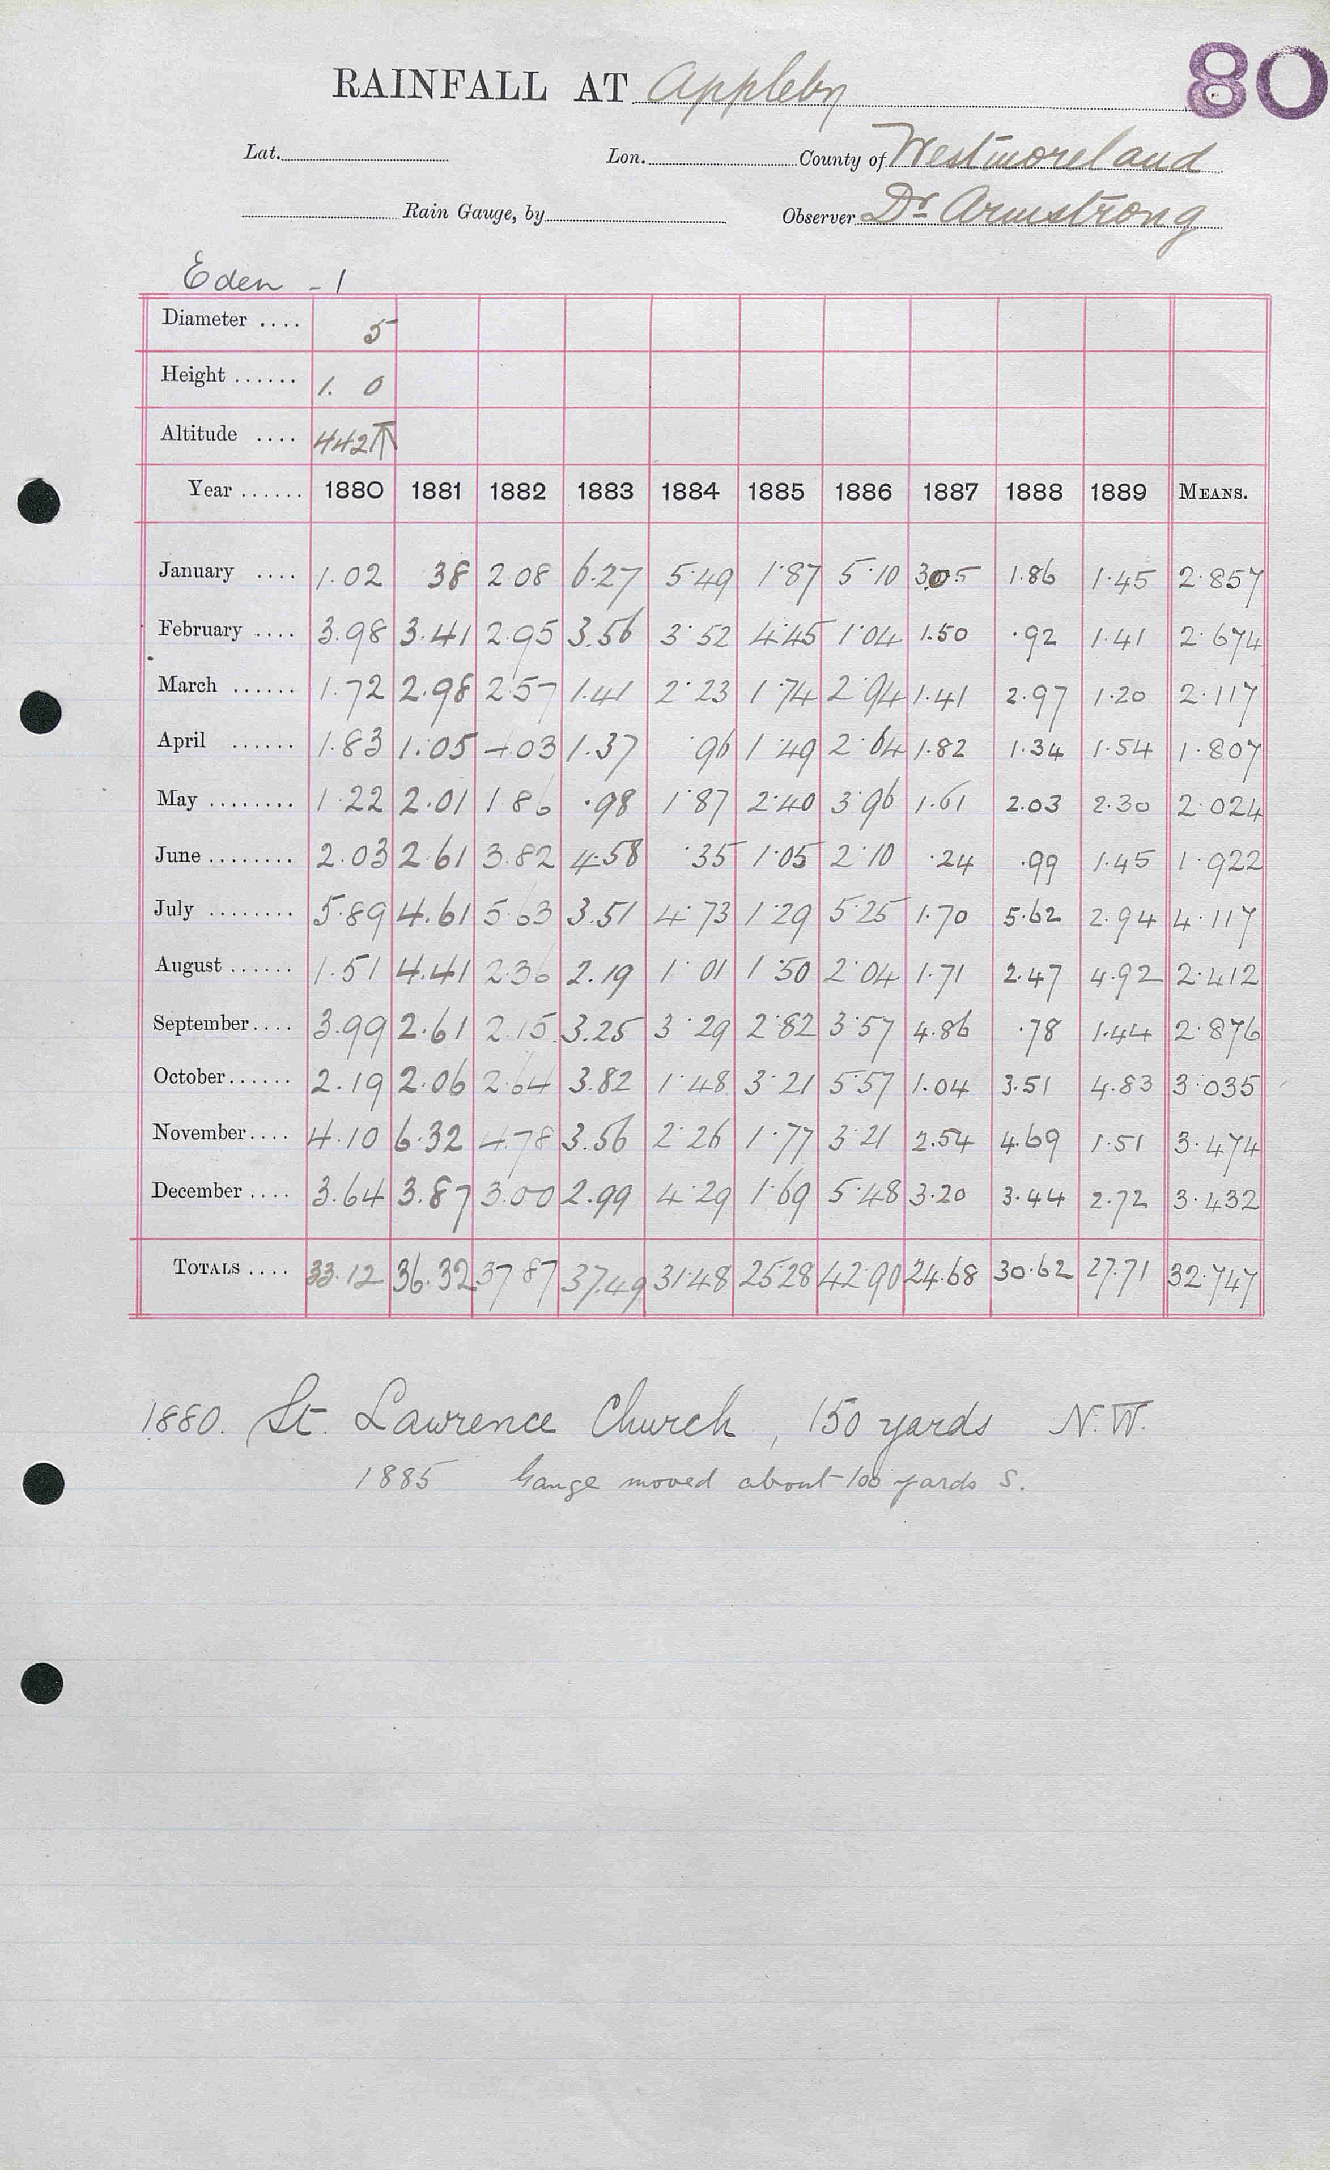 80
RAINFALL AT Appleby
Lat. Lon. County of Westmoreland
Rain Gauge, by Observer Dr. Armstrong
Eden - 1
Diameter .... 5
Height ...... 1. 0
Altitude .... 442 T
Year ...... 1880 1881 1882 1883 1884 1885 1886 1887 1888 1889 MEANS.
January .... 1.02 38 2.08 6.27 5.49 1.87 5.10 3.05 1.86 1.45 2.857
February .... 3.98 3.41 2.95 3.56 3.52 4.45 1.04 1.50 .92 1.41 2.674
March ...... 1.72 2.98 2.57 1.41 2.23 1.74 2.94 1.41 2.97 1.20 2.117
April ...... 1.83 1.05 4.03 1.37 .96 1.49 2.64 1.82 1.34 1.54 1.807
May ........ 1.22 2.01 1.86 .98 1.87 2.40 3.96 1.61 2.03 2.30 2.024
June ........ 2.03 2.61 3.82 4.58 .35 1.05 2.10 .24 .99 1.45 1.922
July ........ 5.89 4.61 5.63 3.51 4.73 1.29 5.25 1.70 5.62 2.94 4.117
August ...... 1.51 4.41 2.36 2.19 1.01 1.50 2.04 1.71 2.47 4.92 2.412
September.... 3.99 2.61 2.15 3.25 3.29 2.82 3.57 4.86 .78 1.44 2.876
October...... 2.19 2.06 2.64 3.82 1.48 3.21 5.57 1.04 3.51 4.83 3.035
November.... 4.10 6.32 4.78 3.56 2.26 1.77 3.21 2.54 4.69 1.51 3.474
December .... 3.64 3.87 3.00 2.99 4.29 1.69 5.48 3.20 3.44 2.72 3.432
TOTALS .... 33.12 36.32 37.87 37.49 31.48 25.28 42.90 24.68 30.62 27.71 32.747
1880. St. Lawrence Church, 150 yards N.W.
1885 Gauge moved about 100 yards S.